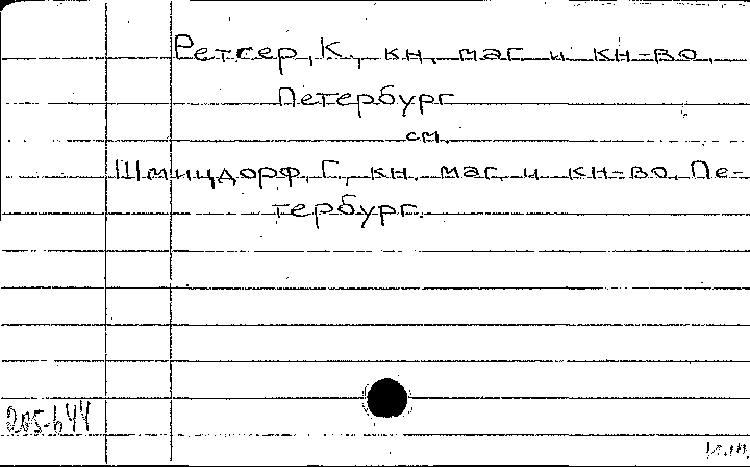 Реттер, К., кн. маг. и кн-во.
Петербург
см.
Шмицдорф, Г., кн. маг. и кн-во. Пе-
тербург.